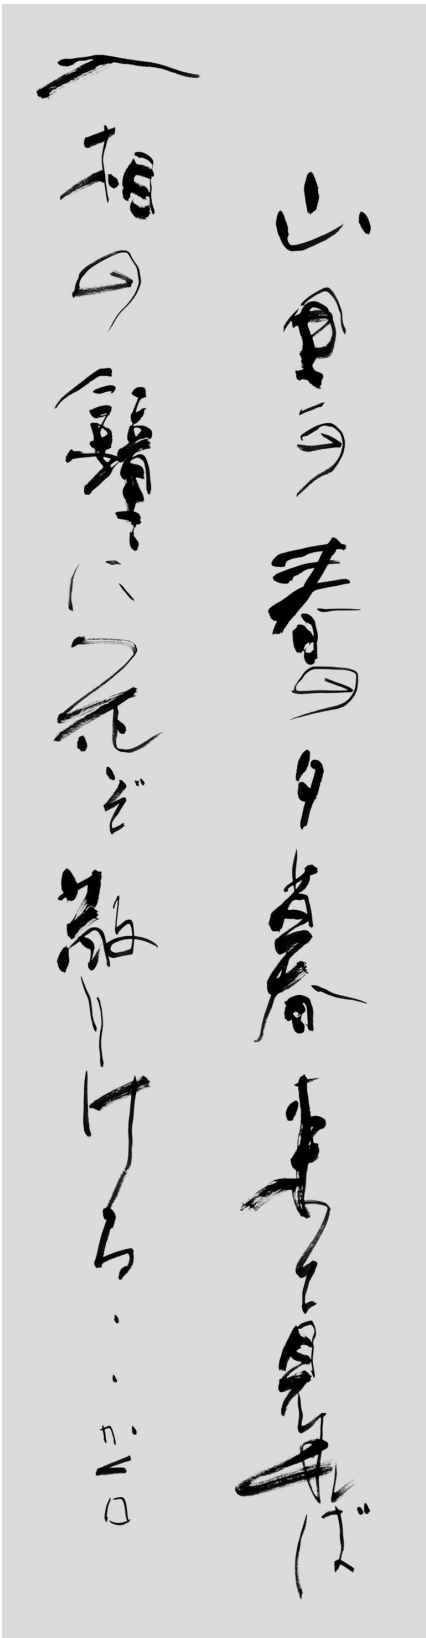 山里の春の夕暮来て見れば
入相の鐘に花ぞ散りける・・